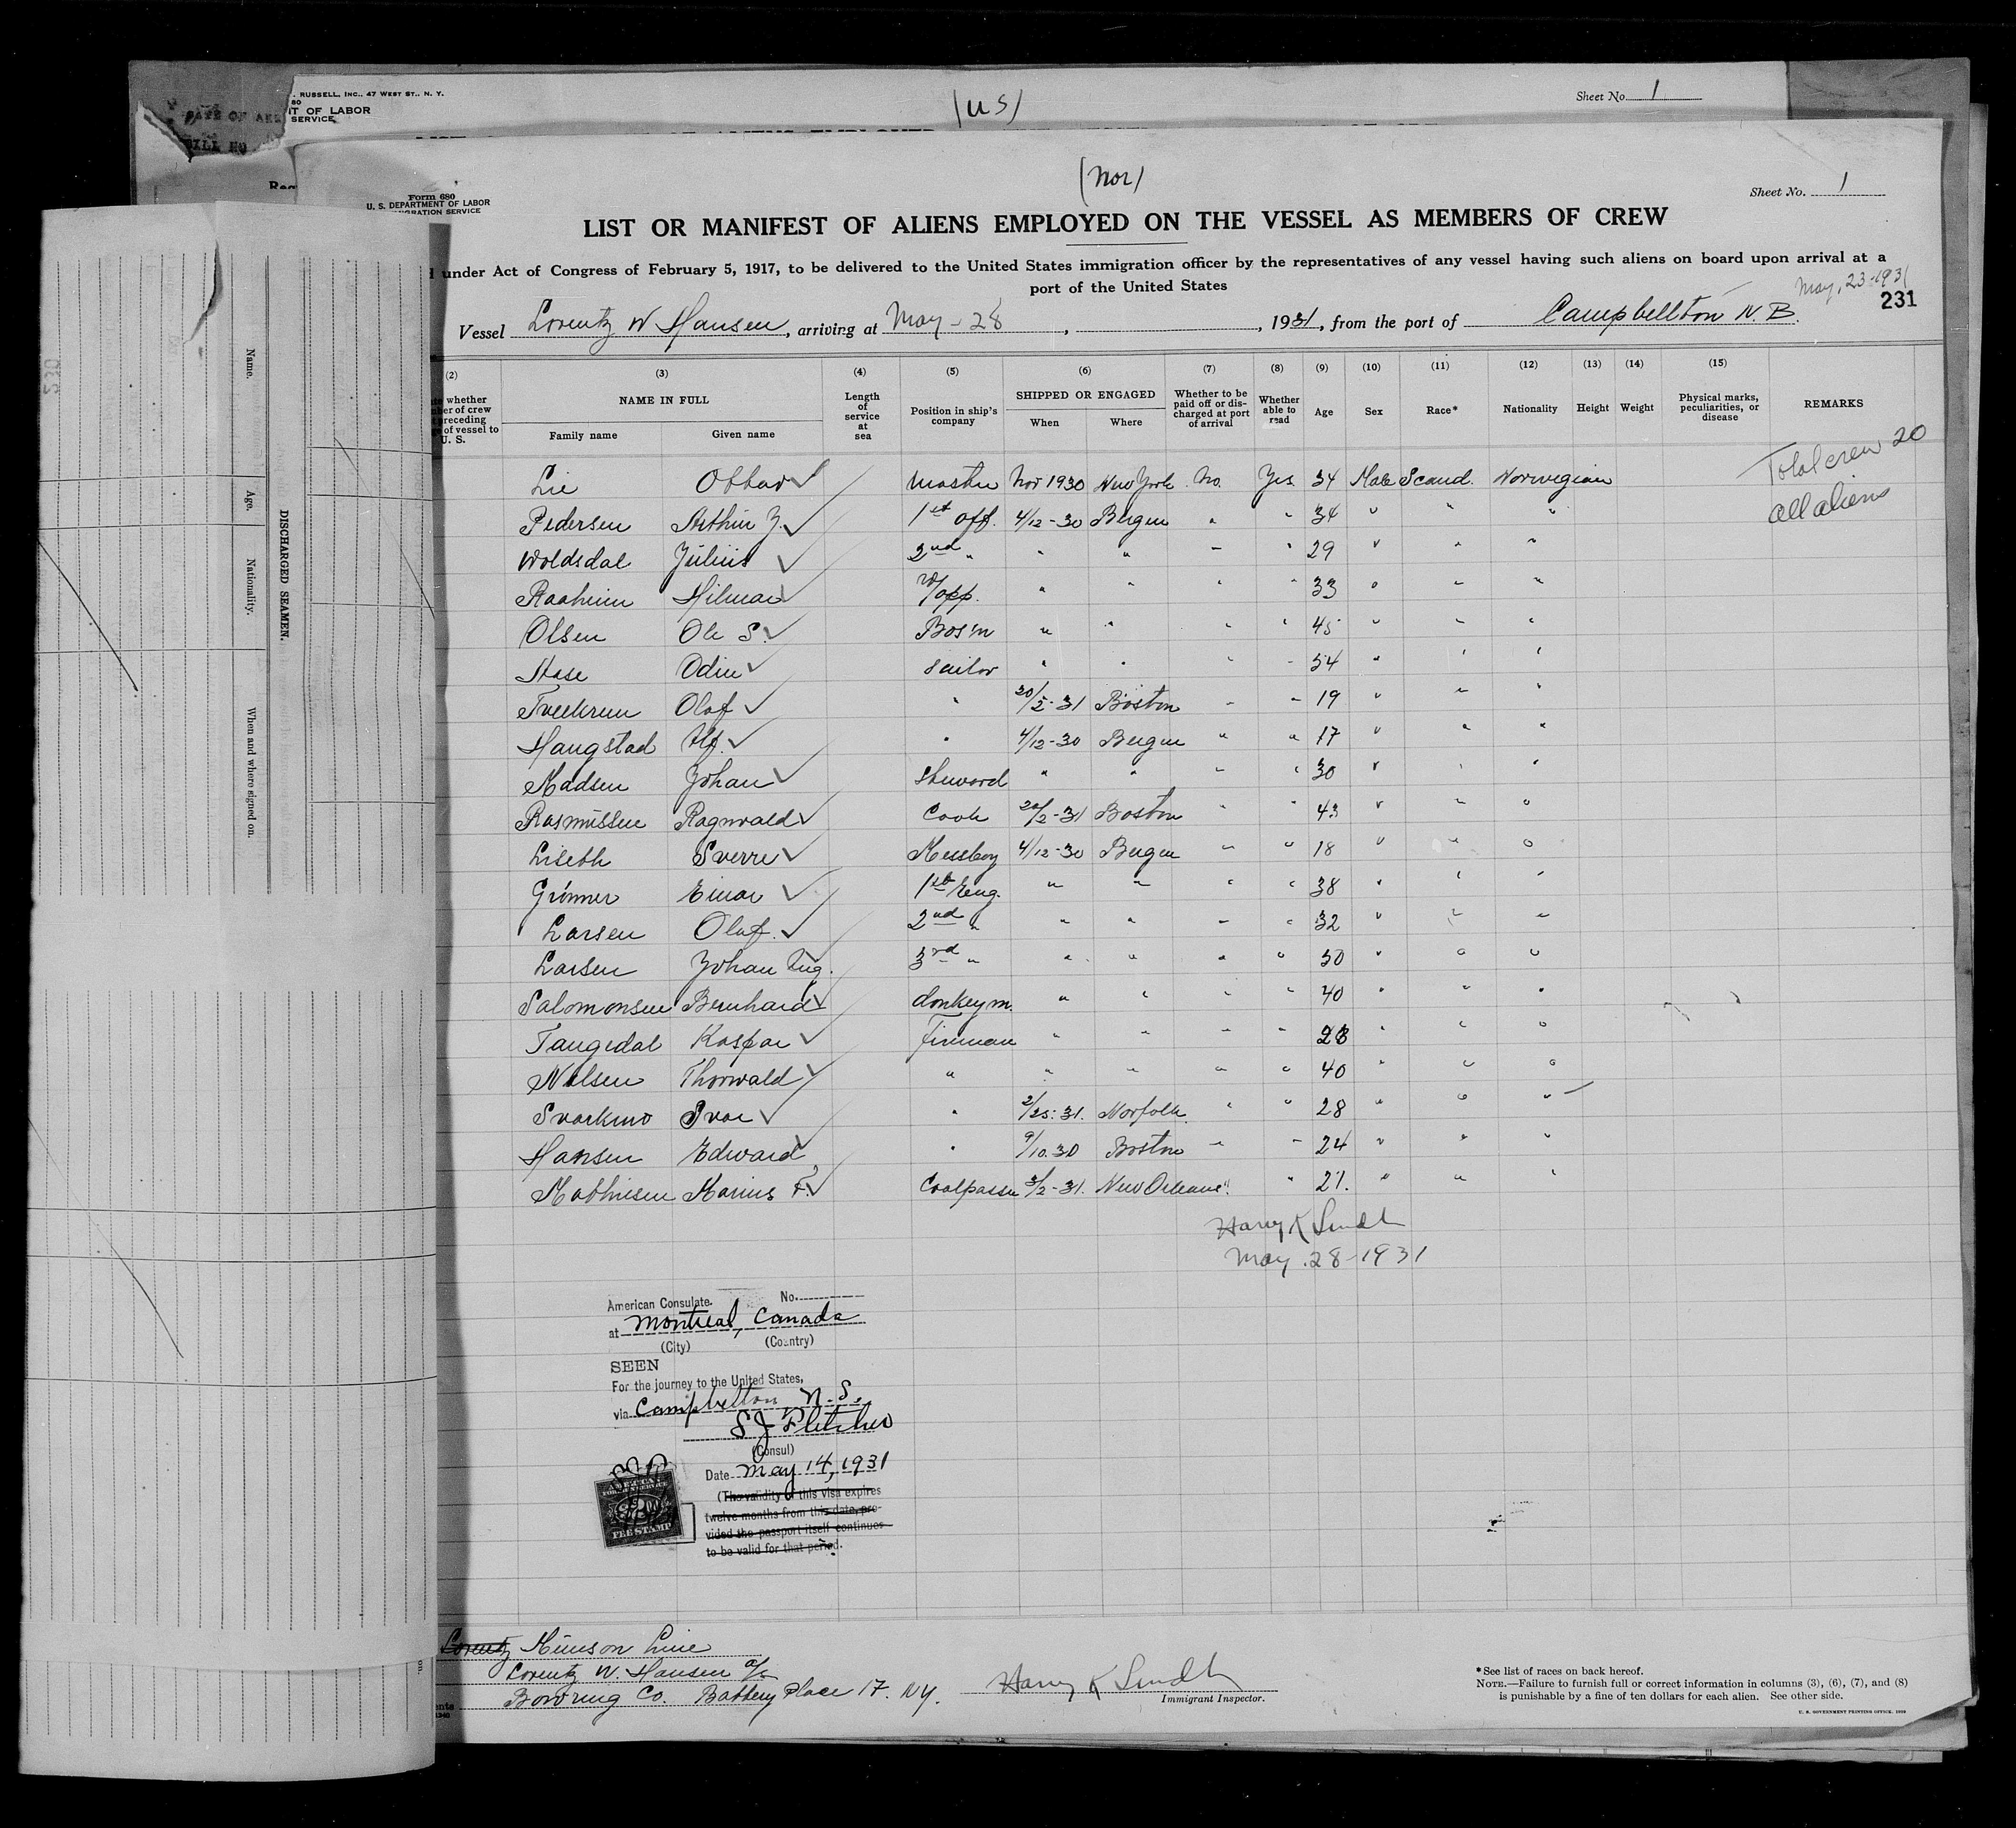 . RUSSELL, INC., 47 WEST ST., N. Y.
80
T OF LABOR
SERVICE
(US)
Sheet No. 1
(Nor)
Form 680
U. S. DEPARTMENT OF LABOR
GRATION SERVICE
Sheet No. 1
LIST OR MANIFEST OF ALIENS EMPLOYED ON THE VESSEL AS MEMBERS OF CREW
under Act of Congress of February 5, 1917, to be delivered to the United States immigration officer by the representatives of any vessel having such aliens on board upon arrival at a
port of the United States
May, 23-1931
231
Vessel Lorentz W Hansen, arriving at May - 28, 1931, from the port of Campbellton N. B.
(2) (3) (4) (5) (6) (7) (8) (9) (10) (11) (12) (13) (14) (15)
whether
ber of crew
preceding
of vessel to
U. S.
NAME IN FULL
Family name Given name
Length of service at sea
Position in ship's company
SHIPPED OR ENGAGED
When Where
Whether to be paid off or discharged at port of arrival
Whether able to read
Age
Sex
Race*
Nationality
Height
Weight
Physical marks, peculiarities, or disease
REMARKS
Total crew 20
all aliens
Lie Ottar Master Nov 1930 New York No. Yes 34 Male Scand. Norwegian
Pedersen 1st off. 4/12-30 Bergen " " 34 " " "
Woldsdal Julius 2nd " " " " " 29 " " "
Raaheim Hilmar " " " " 33 " " "
Olsen Ole S. Bos'n " " " " 45 " " "
Odin Sailor " " " " 54 " " "
Olaf " 20/2-31 Boston " " 19 " " "
Haugstad Alf. " 4/12-30 Bergen " " 17 " " "
Madsen Johan Steward " " " " 30 " " "
Rasmussen Ragnvald Cook 20/2-31 Boston " " 43 " " "
Liseth Sverre Messboy 4/12-30 Bergen " " 18 " " "
Grønner Einar 1st Eng. " " " " 38 " " "
Larsen Olaf. 2nd " " " " " 32 " " "
Larsen Johan Aug. 3rd " " " " " 30 " " "
Salomonsen Bernhard donkeym. " " " " 40 " " "
Tangedal Kaspar Fireman " " " " 28 " " "
Nilsen Thorvald " " " " " 40 " " "
Ivar " 2/25-31. Norfolk " " 28 " " "
Hansen Edward " 9/10.30 Boston " " 24 " " "
Mathiesen Marius F. Coalpasser 3/2-31. New Orleans " " 21. " " "
Harry K Lindh
May. 28-1931
American Consulate No.
at Montreal, Canada
(City) (Country)
SEEN
For the journey to the United States,
via Campbelton N. S.
S J Fletcher
(Consul)
Date May 14, 1931
(The validity of this visa expires
twelve months from this date, pro-
vided the passport itself continues
to be valid for that period.
FEE STAMP
Lorentz Munson Line
Lorentz W. Hansen a/s
Bowring Co. Battery Place 17. NY.
Harry K Lindh
Immigrant Inspector.
* See list of races on back hereof.
NOTE.—Failure to furnish full or correct information in columns (3), (6), (7), and (8)
is punishable by a fine of ten dollars for each alien. See other side.
U. S. GOVERNMENT PRINTING OFFICE
DISCHARGED SEAMEN.
Name.
Age.
Nationality.
When and where signed on.